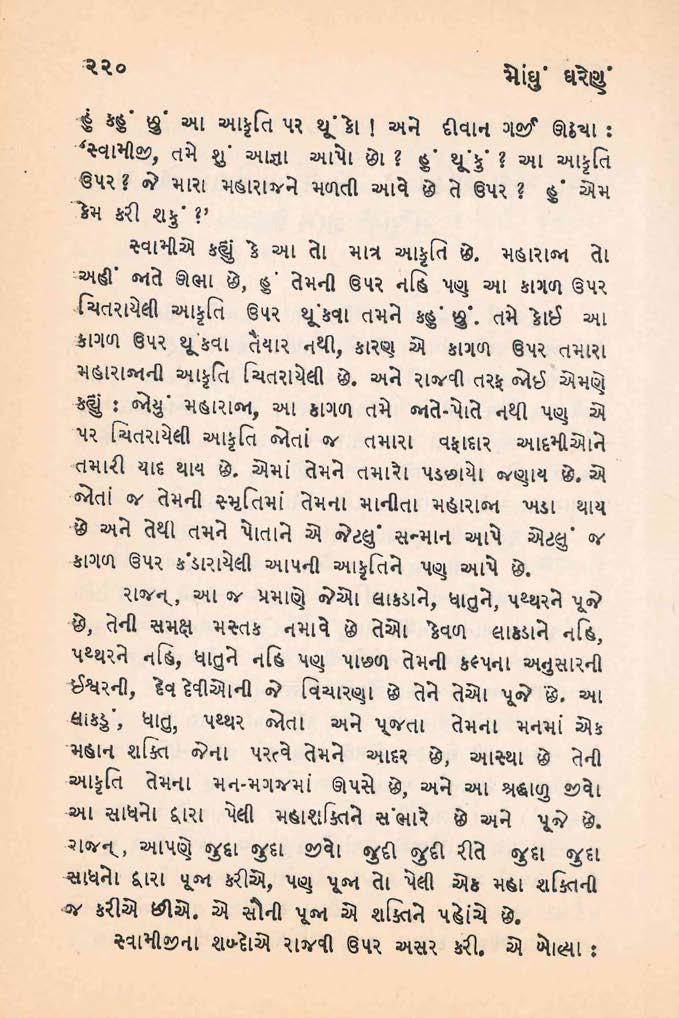 ૨૨૦
મોંઘું ઘરેણું
હું કહું છું આ આકૃતિ પર થૂંકો ! અને દીવાન ગર્જી ઊઠયા :
‘સ્વામીજી, તમે શું આજ્ઞા આપો છો ? હું થૂંકું ? આ આકૃતિ
ઉપર ? જે મારા મહારાજને મળતી આવે છે તે ઉપર ? હું એમ
કેમ કરી શકું ?’
સ્વામીએ કહ્યું કે આ તો માત્ર આકૃતિ છે. મહારાજા તો
અહીં જાતે ઊભા છે, હું તેમની ઉપર નહિ પણ આ કાગળ ઉપર
ચિતરાયેલી આકૃતિ ઉપર થૂંકવા તમને કહું છું. તમે કોઈ આ
કાગળ ઉપર થૂંકવા તૈયાર નથી, કારણ એ કાગળ ઉપર તમારા
મહારાજાની આકૃતિ ચિતરાયેલી છે. અને રાજવી તરફ જોઈ એમણે
કહ્યું : જોયું મહારાજા, આ કાગળ તમે જાતે-પોતે નથી પણ એ
પર ચિતરાયેલી આકૃતિ જોતાં જ તમારા વફાદાર આદમીઓને
તમારી યાદ થાય છે. એમાં તેમને તમારો પડછાયો જણાય છે. એ
જોતાં જ તેમની સ્મૃતિમાં તેમના માનીતા મહારાજા ખડા થાય
છે અને તેથી તમને પોતાને એ જેટલું સન્માન આપે એટલું જ
કાગળ ઉપર કંડારાયેલી આપની આકૃતિને પણ આપે છે.
રાજન્, આ જ પ્રમાણે જેઓ લાકડાને, ધાતુને, પથ્થરને પૂજે
છે, તેની સમક્ષ મસ્તક નમાવે છે તેઓ કેવળ લાકડાને નહિ,
પથ્થરને નહિ, ધાતુને નહિ પણ પાછળ તેમની કલ્પના અનુસારની
ઈશ્વરની, દેવ દેવીઓની જે વિચારણા છે તેને તેઓ પૂજે છે. આ
લાકડું, ધાતુ, પથ્થર જોતા અને પૂજતા તેમના મનમાં એક
મહાન શક્તિ જેના પરત્વે તેમને આદર છે, આસ્થા છે તેની
આકૃતિ તેમના મન-મગજમાં ઊપસે છે, અને આ શ્રદ્ધાળુ જીવો
આ સાધનો દ્વારા પેલી મહાશક્તિને સંભારે છે અને પૂજે છે.
રાજન્, આપણે જુદા જુદા જીવો જુદી જુદી રીતે જુદા જુદા
સાધનો દ્વારા પૂજા કરીએ, પણ પૂજા તો પેલી એક મહા શક્તિની
જ કરીએ છીએ. એ સૌની પૂજા એ શક્તિને પહોંચે છે.
સ્વામીજીના શબ્દોએ રાજવી ઉપર અસર કરી. એ બોલ્યા :